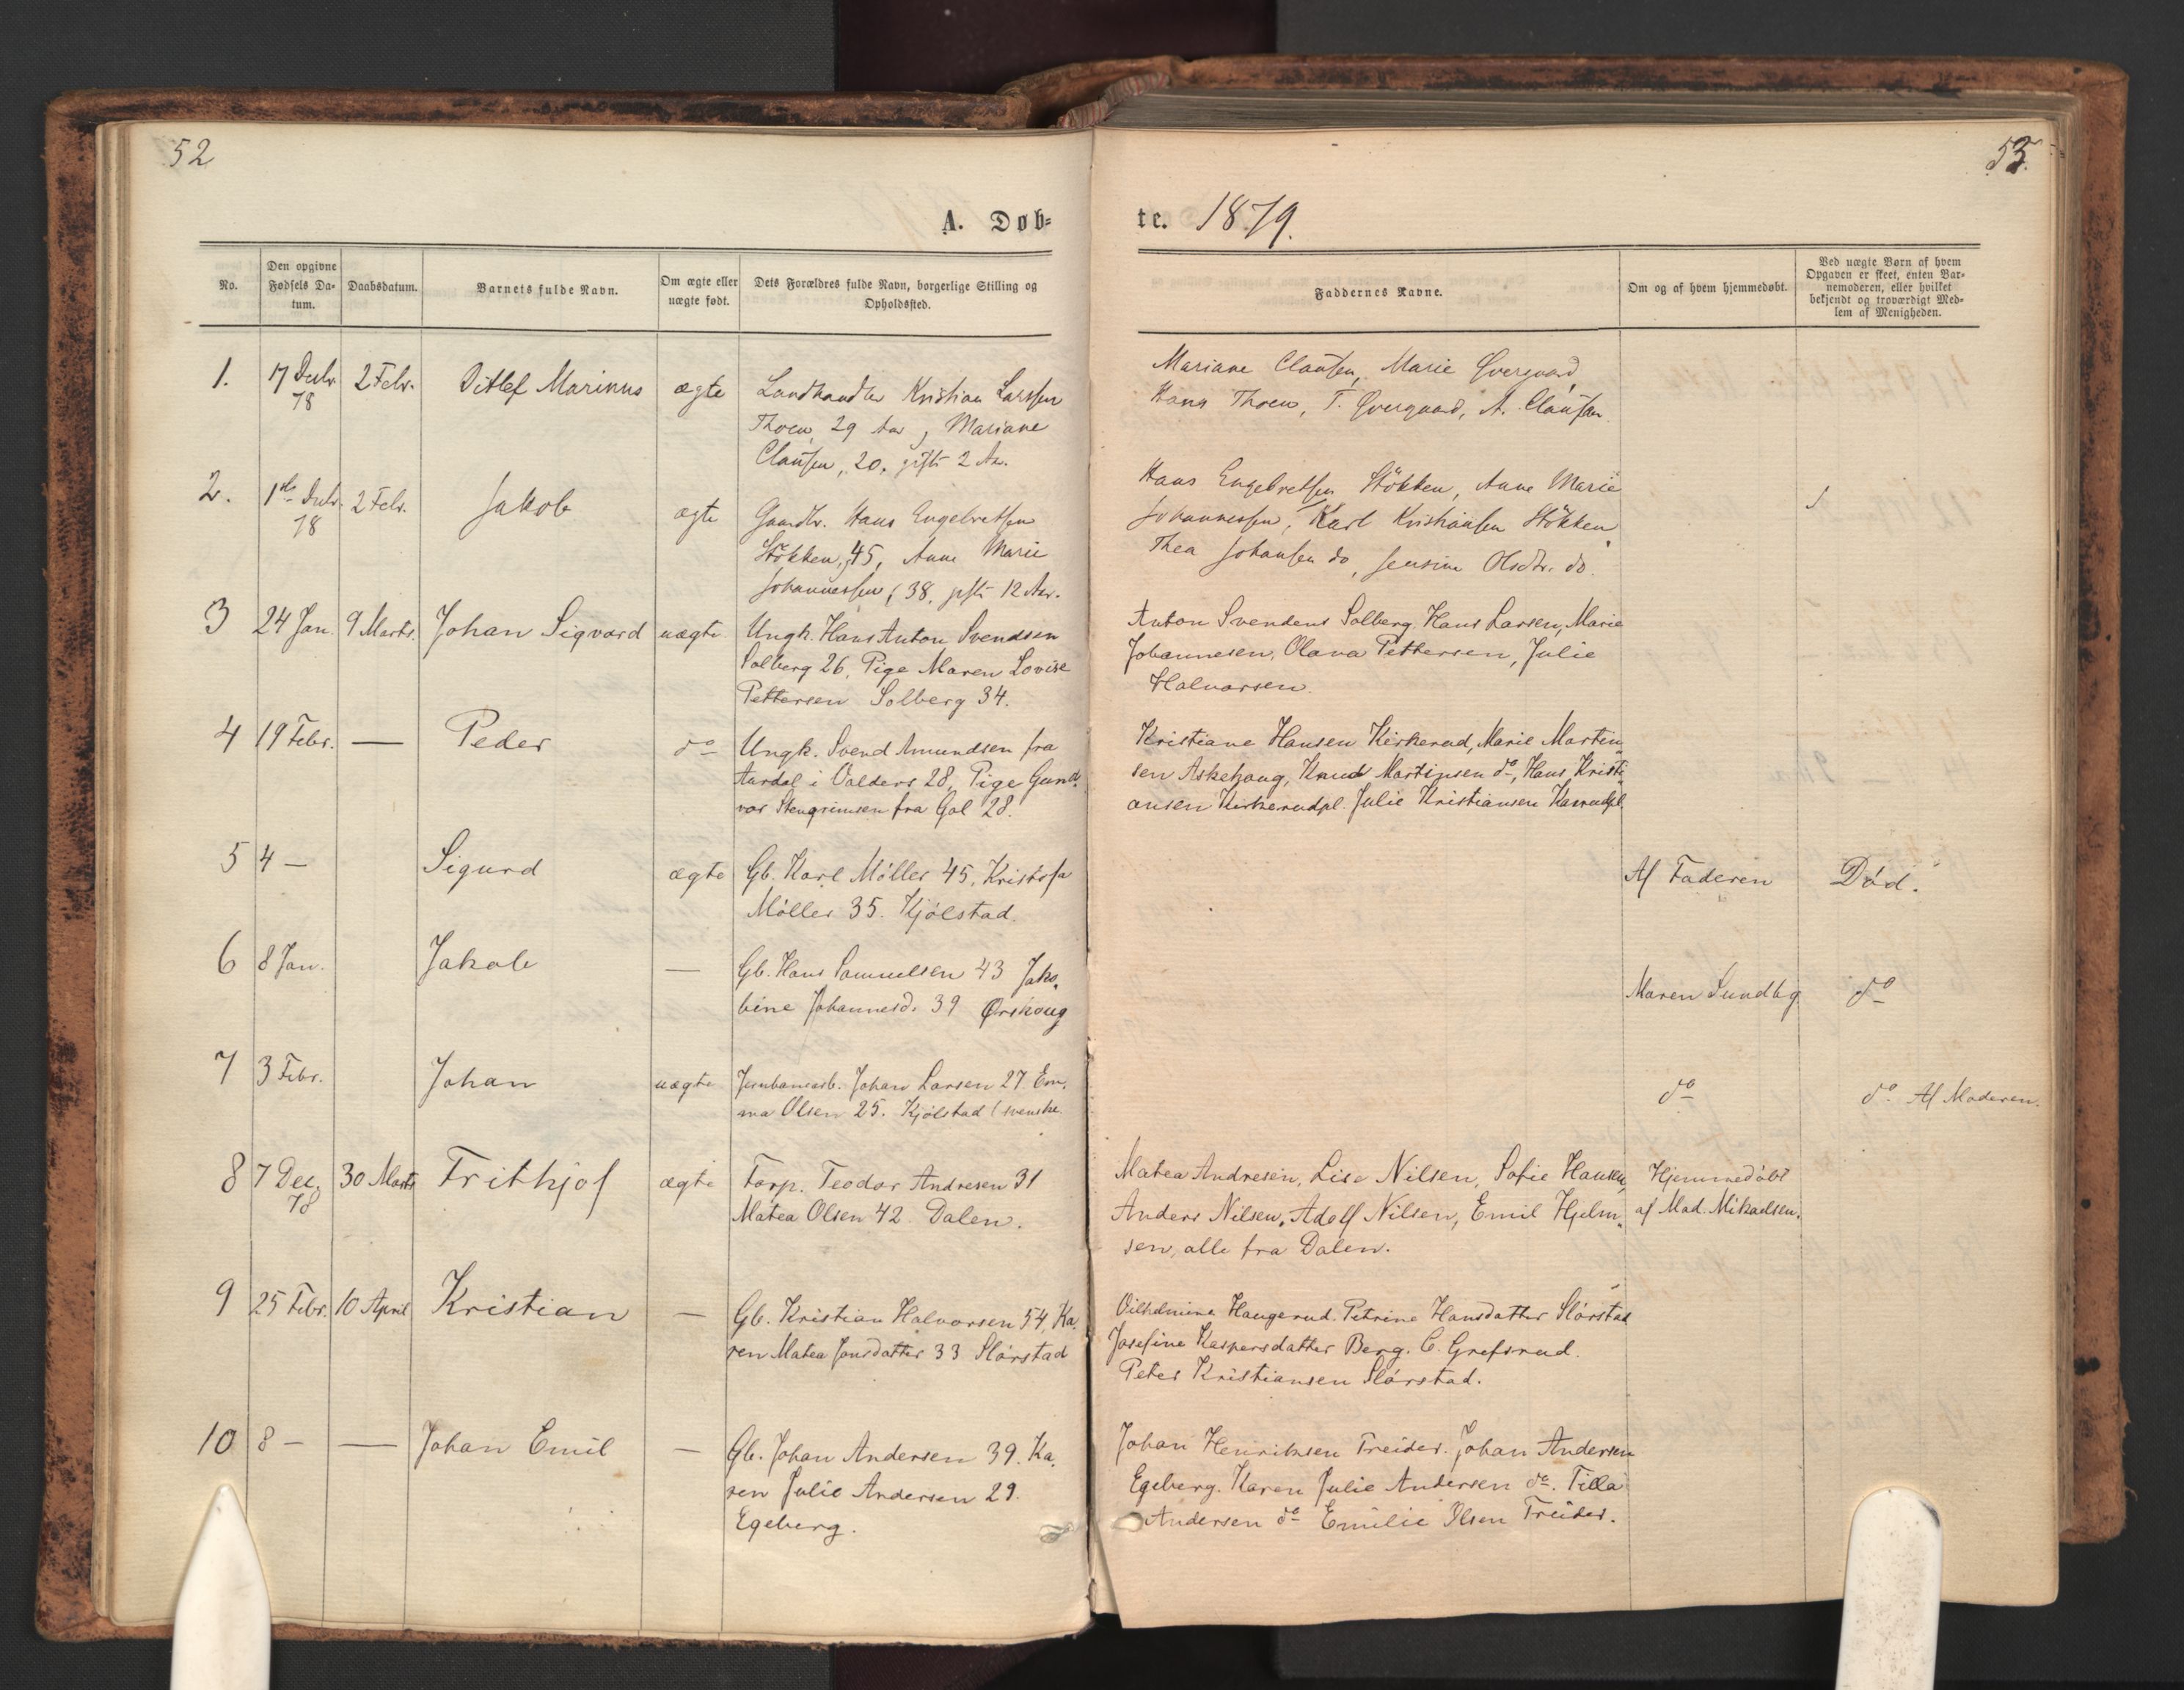 52
53.
A. Døb-
te. 1879.
No.
Den opgivne Fødsels Da-
tum.
Daabsdatum.
Barnets fulde Navn.
Om ægte eller
uægte født.
Dets Forældres fulde Navn, borgerlige Stilling og
Opholdssted.
Faddernes Navne.
Om og af hvem hjemmedøbt.
Ved uægte Børn af hvem
Opgaven er skeet, enten Bar-
nemoderen, eller hvilket
bekjendt og troværdigt Med-
lem af Menigheden.
1. 17 Decbr. 78 2 Febr. Ditlef Marinus ægte Landhandler Kristian Larssen
Thoen, 29 Aar, Mariane
Clausen, 20, gift 2 Ar.
Mariane Clausen, Marie Qvergaard
Hans Thoen, T. Qvergaard, A. Clausen
2. 1ste Decbr. 78 2 Febr. Jakob ægte Gaardbr. Hans Engebretsen
Støkken, 45, Anne Marie
Johannessen, 38, gift 12 Aar.
Hans Engebretsen Støkken, Anne Marie
Johannessen, Karl Kristiansen Støkken,
Thea Johansen do, Jensine Olsdtr. do.
3 24 Jan. 9 Marts. Johan Sigvard uægte Ungk. Hans Anton Svendsen
Solberg 26, Pige Maren Lovise
Pettersen Solberg 34.
Anton Svendsens Solberg, Hans Larsen, Marie
Johannesen, Olava Pettersen, Julie
Halvorsen.
4 19 Febr. — Peder do Ungk. Svend Amundsen fra
Aurdal i Valders 28, Pige Gund-
vor Stengrimsen fra Gol 28.
Kristiane Hansen Kirkerud, Marie Martin-
sen Askehaug, Knud Martinsen do, Hans Kristi-
ansen Kirkerudpl. Julie Kristiansen
5 4 — Sigurd ægte Gb. Karl Møller 45, Kristofa
Møller 35. Kjølstad.
Af Faderen Død.
6 8 Jan. Jakob — Gb. Hans Samuelsen 43 Jako-
bine Johannesd. 39 Ørskoug
Maren Sundbg. do
7 3 Febr. Johan uægte Jernbanearb. Johan Larsen 27 Em-
ma Olsen 25. Kjølstad (svenske.
do do Af Moderen.
8 7 Dec. 78 30 Marts Frithjof ægte Torp. Teodor Andresen 31
Matea Olsen 42 Dalen.
Matea Andresen, Lise Nilsen, Sofie Hansen,
Anders Nilsen, Adolf Nilsen, Emil Hjelm-
sen, alle fra Dalen.
Hjemmedøbt
af Mad. Mikaelsen.
9 25 Febr. 10 April Kristian — Gb. Kristian Halvorsen 54, Ka-
ren Matea Jonsdatter 33 Slørstad
Vilhelmine Haugerud. Petrine Hansdatter Slørstad
Josefine Kaspersdatter Berg. C. Grefsrud.
Peter Kristiansen Slørstad.
10 8 — — Johan Emil — Gb. Johan Andersen 39. Ka-
ren Julie Andersen 29.
Egeberg.
Johan Henriksen Treider. Johan Andersen
Egeberg. Karen Julie Andersen do. Tilla
Andersen do Emilie Olsen Treider.